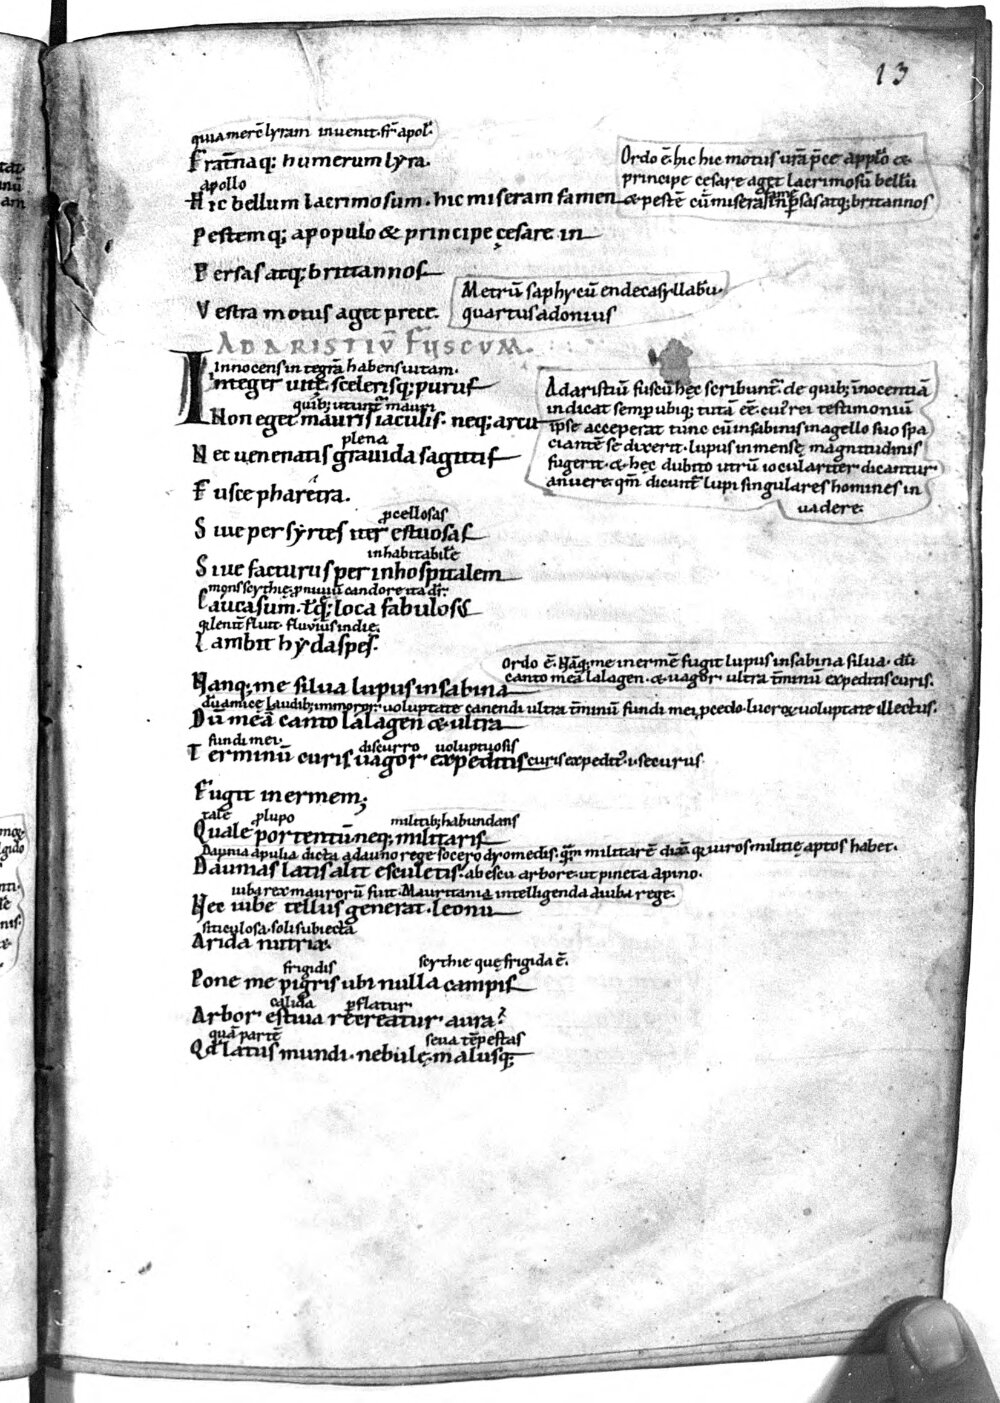 13
quia merc̄ lyram inuenit. fr̄ apol.
Frat̄naq; humerum lyra.
Ordo ē. hic hic motus ur̄a p̄ce appł̄o &
apollo
principe cesare aget lacrimosū bellū
Hic bellum lacrimosum. hic miseram famem
& pestē cū misera fame in p̄sas atq; britannos
Pestemq; apopulo & principe cęsare in
Persas atq; brittannos
Metrū saphycū endecasyllabū.
Vestra motus aget prece.
quartus adonius
AD ARISTIŪ FUSCUM.
Innocens in tegrā habens uitam.
Integer uitę. scelerisq; purus
Ad aristiū fuscū hęc scribunt̄. de quib; īnocentiā
quib; utunt̄ mauri
indicat semp ubiq; tutā ēē. cui rei testimoniū
Non eget mauris iaculis. neq; arcu
ip̄se acceperat tunc cū insabinis inagello suo spa
plena
ciantē se dixerit. lupus inmensę magnitudinis
Nec uenenatis grauida sagittis
fugerit. & hęc dubito utrū ioculariter dicantur
anuere. qm̄ dicunt̄ lupi singulares homines in
Fusce pharetra.
uadere.
pcellosas
Siue per syrtes iter estuosas
inhabitabilē
Siue facturus per inhospitalem
mons scythię. p niuiū candore ita dr̄.
Caucasum. t̄q; loca fabulosus
q̄ lent̄ fluit. fluuius indię.
Lambit hydaspes.
Ordo ē. Nāq; me inermē fugit lupus insabina silua. dū
canto meā lalagen. & uagor ultra t̄minū expeditis curis.
Nanq; me silua lupus insabina
dū amicę laudib; immoror. uoluptate canendi ultra t̄minū fundi mei pcedo. luor & uoluptate illectus.
Dū meā canto lalagen & ultra
fundi mei. discurro uoluptuosis
Terminū curis uagor expeditis
curis expedit. i. securus.
Fugit inermem;
tale p lupo militib; habundans
Quale portentū neq; militaris
Daunia apulia dicta a dauno rege socero dyomedis. quā militarē dix̄ q̄ uiros militię aptos habet.
Daunias latis alit esculetis. ab escu arbore. ut pineta a pino.
iuba rex maurorū fuit. Mauritania intelligenda a iuba rege.
Nec iube tellus generat. leonū
siticulosa. soli subiecta
Arida nutrix.
frigidis scythię quę frigida ē.
Pone me pigris ubi nulla campis
calida pflatur
Arbor estiua recreatur aura?
quā partē seua tēpestas
Qd̄ latus mundi. nebulę. malusq;